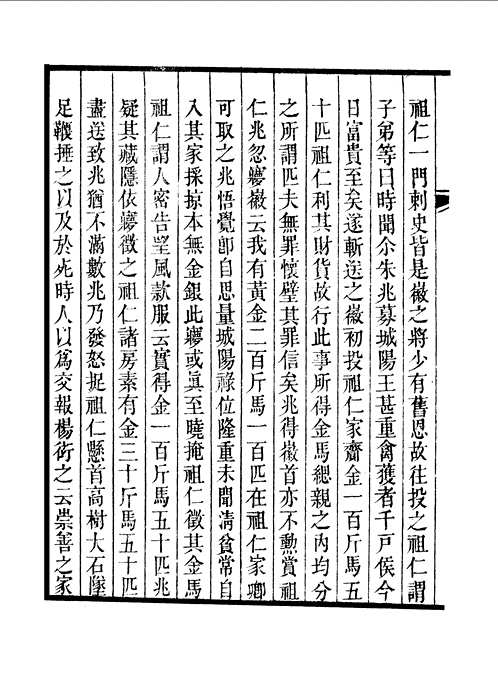 祖仁一門刺史皆是徽之將少有舊恩故往投之祖仁謂
子弟等曰時聞尒朱兆募城陽王甚重禽獲者千戸侯今
日富貴至矣遂斬送之徽初投祖仁家齎金一百斤馬五
十匹祖仁利其財貨故行此事所得金馬緦親之內均分
之所謂匹夫無罪懷壁其罪信矣兆得徽首亦不勲賞祖
仁兆忽夢徽云我有黃金二百斤馬一百匹在祖仁家卿
可取之兆悟覺卽自思量城陽祿位隆重未聞淸貧常自
入其家採掠本無金銀此夢或眞至曉掩祖仁徵其金馬
祖仁謂人密告望風款服云實得金一百斤馬五十匹兆
疑其藏隱依夢徵之祖仁諸房素有金三十斤馬五十匹
盡送致兆猶不滿數兆乃發怒捉祖仁懸首高樹大石墜
足鞭捶之以及於死時人以爲交報楊衒之云崇善之家